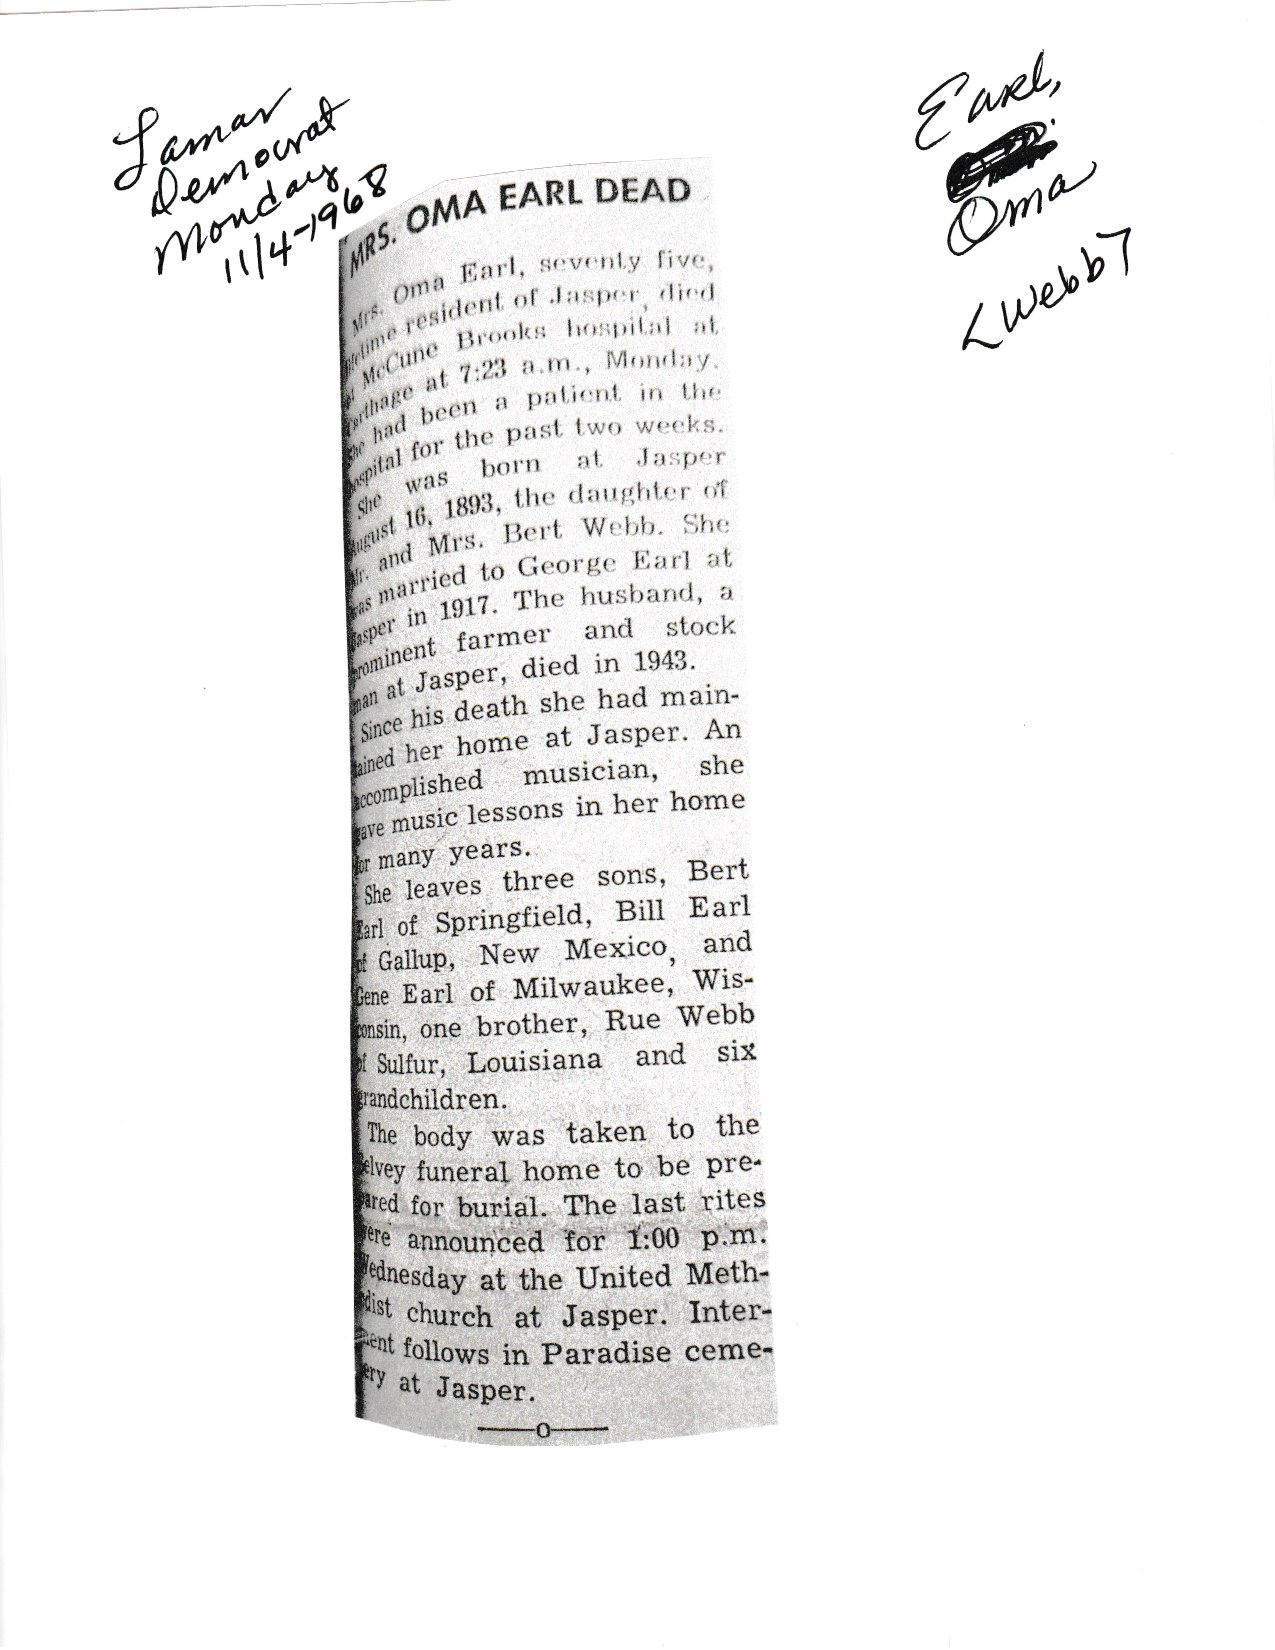 Lamar
Democrat
Monday
11/4-1968
Earl,
Oma
<Webb>
MRS. OMA EARL DEAD
Mrs. Oma Earl, seventy five,
lifetime resident of Jasper, died
at McCune Brooks hospital at
Carthage at 7:23 a.m., Monday.
She had been a patient in the
hospital for the past two weeks.
She was born at Jasper
August 16, 1893, the daughter of
Mr. and Mrs. Bert Webb. She
was married to George Earl at
Jasper in 1917. The husband, a
prominent farmer and stock
man at Jasper, died in 1943.
Since his death she had main-
tained her home at Jasper. An
accomplished musician, she
gave music lessons in her home
for many years.
She leaves three sons, Bert
Earl of Springfield, Bill Earl
of Gallup, New Mexico, and
Gene Earl of Milwaukee, Wis-
consin, one brother, Rue Webb
of Sulfur, Louisiana and six
grandchildren.
The body was taken to the
elvey funeral home to be pre-
pared for burial. The last rites
were announced for 1:00 p.m.
Wednesday at the United Meth-
odist church at Jasper. Inter-
ment follows in Paradise ceme-
tery at Jasper.